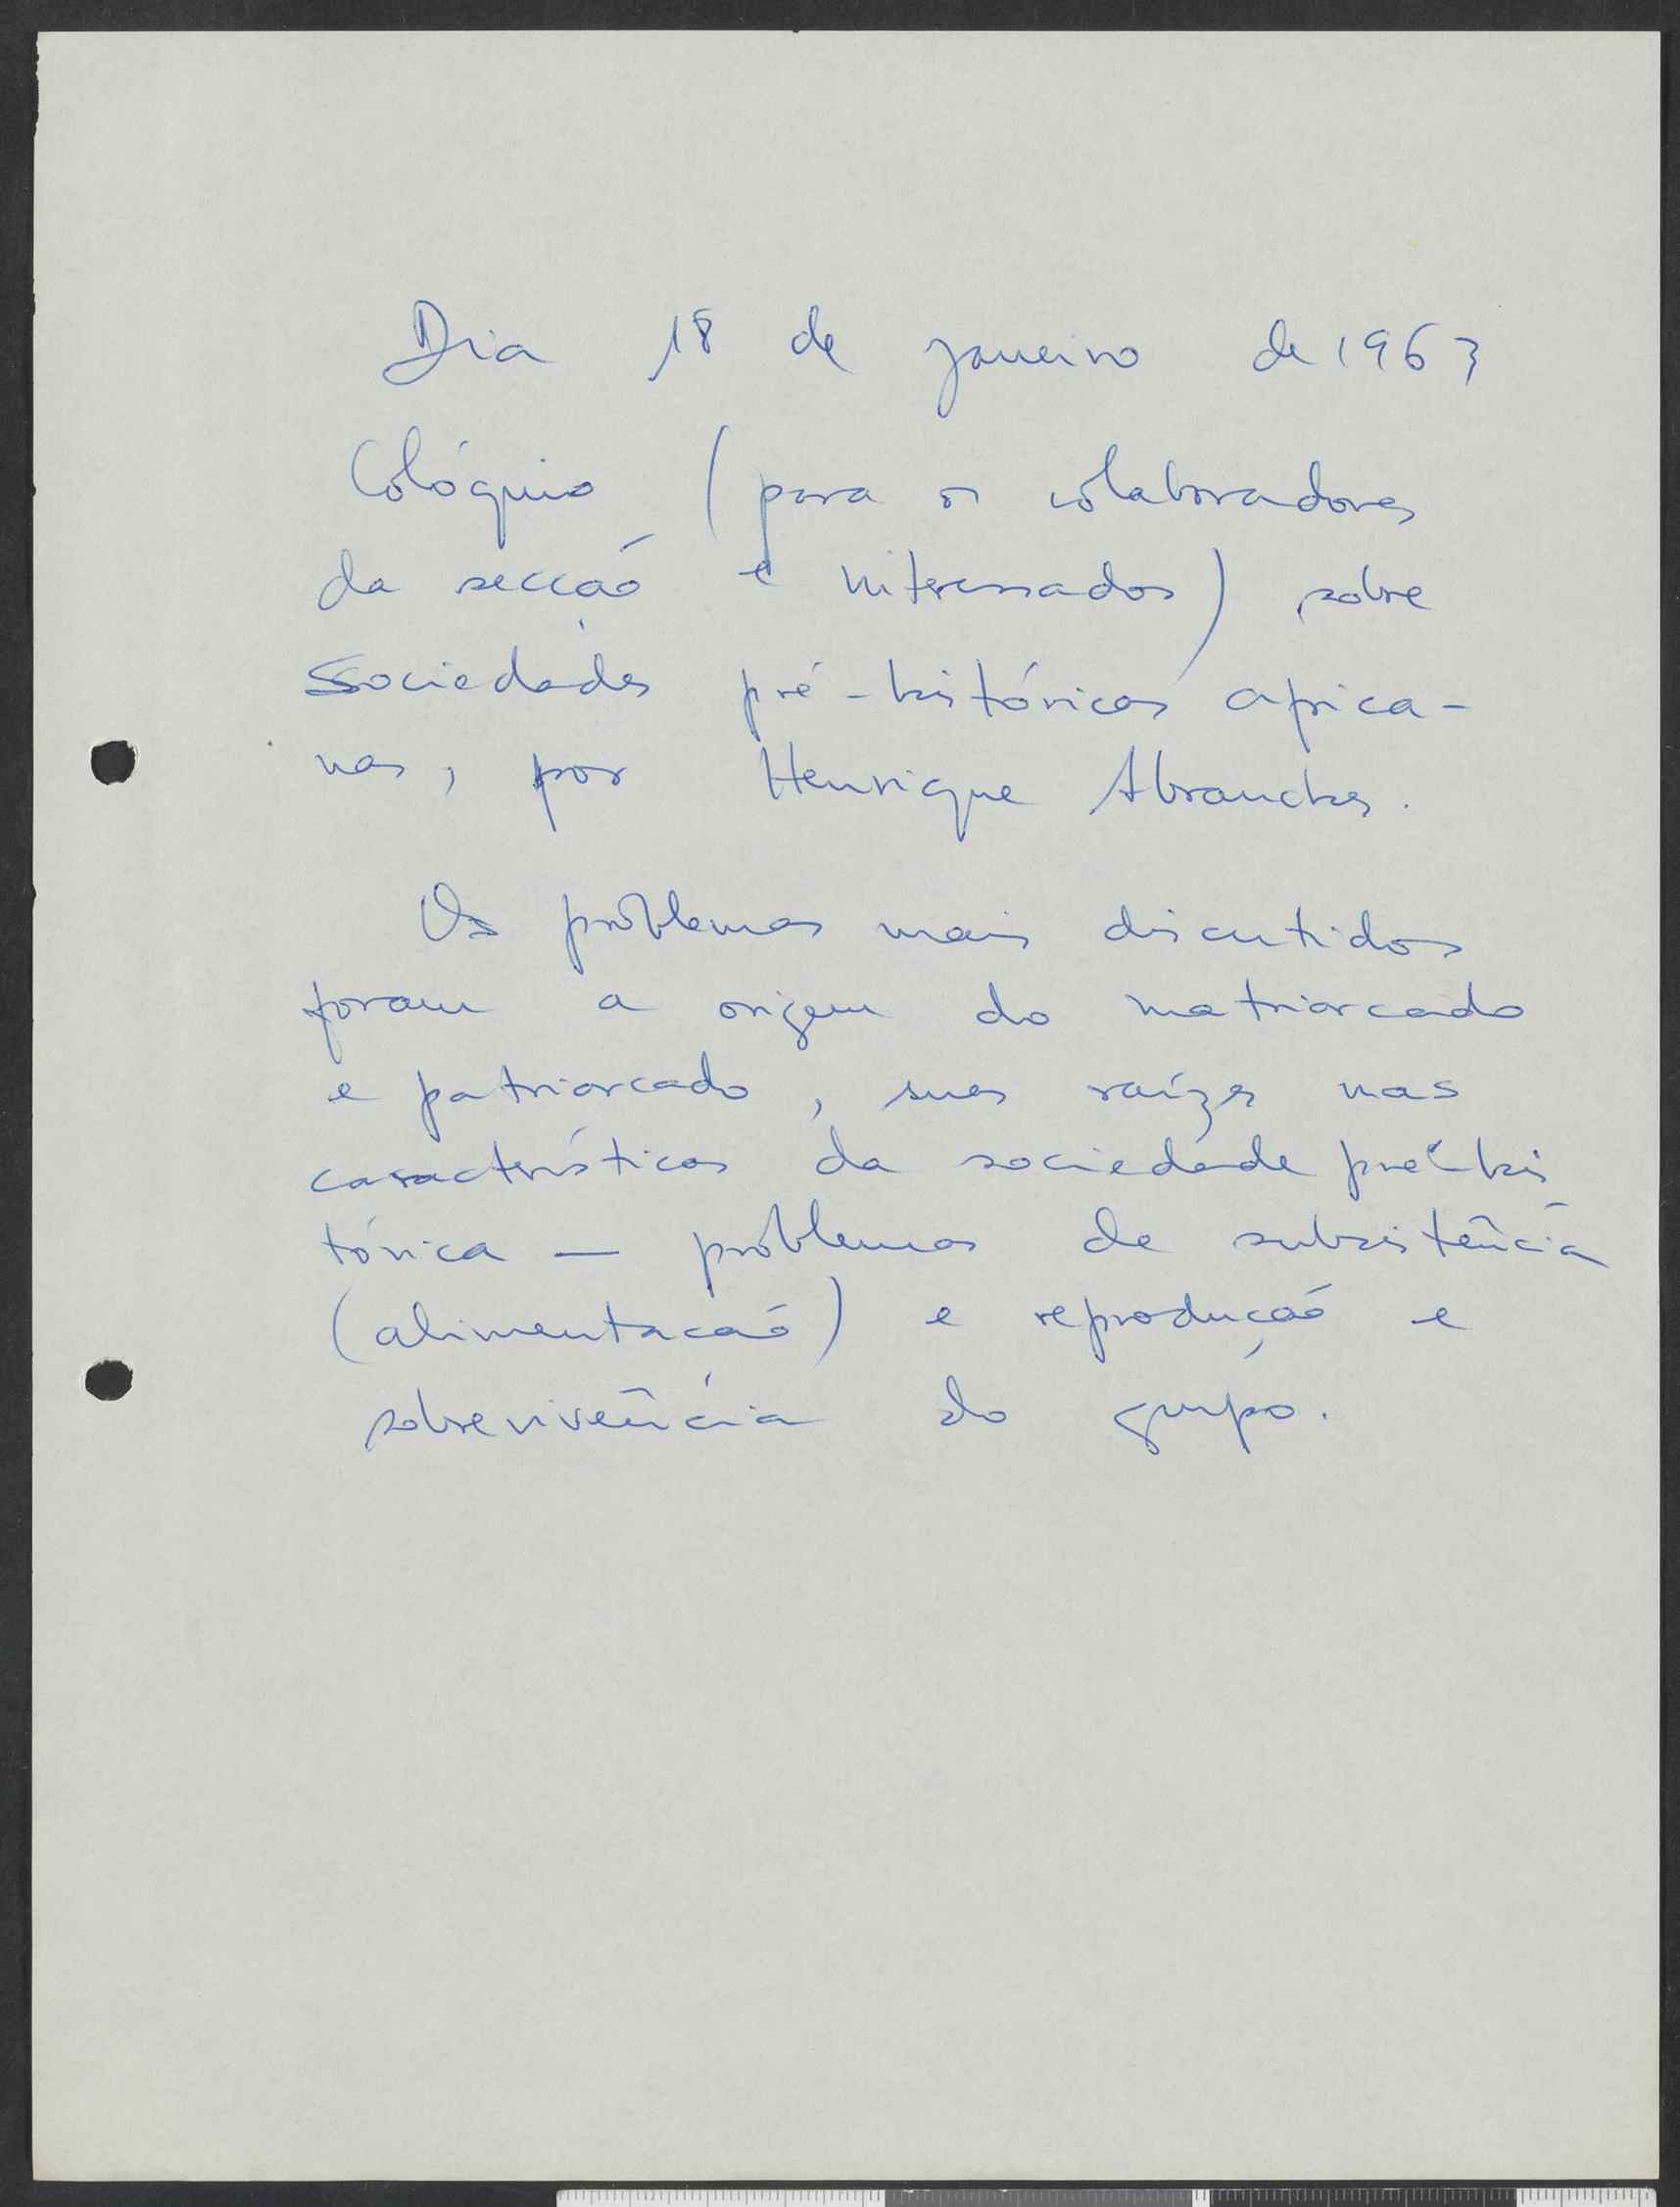 Dia 18 de janeiro de 1963
Colóquio (para os colaboradores
da secção e interessados) sobre
Sociedades pré-históricas africa-
nas, por Henrique Abranches.
Os problemas mais discutidos
foram a origem do matriarcado
e patriarcado, suas raízes nas
características da sociedade pré-his
tórica — problemas de subsistência
(alimentação) e reprodução e
sobrevivência do grupo.